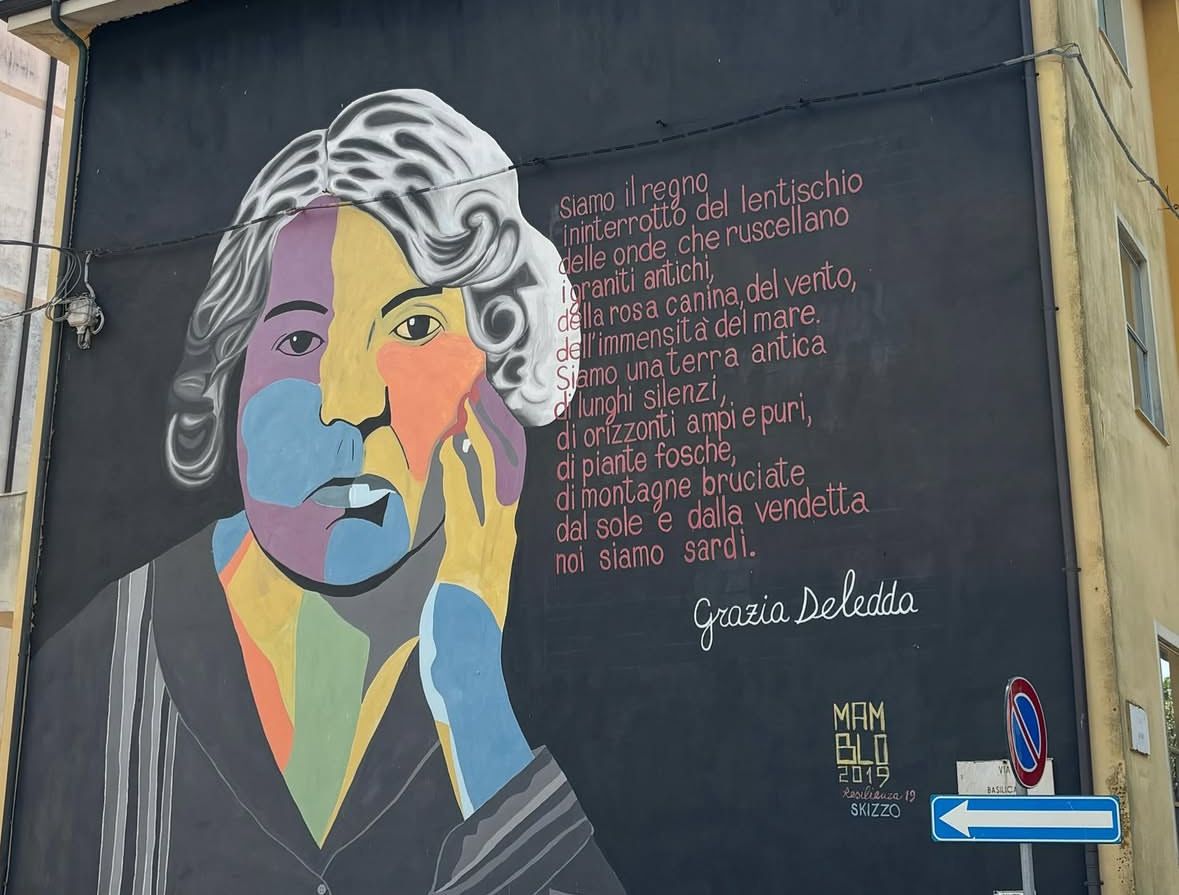 Siamo il regno
ininterrotto del lentischio
delle onde che ruscellano
i graniti antichi,
della rosa canina, del vento,
dell'immensità del mare.
Siamo una terra antica
di lunghi silenzi,
di orizzonti ampi e puri,
di piante fosche,
di montagne bruciate
dal sole e dalla vendetta
noi siamo sardi.
Grazia Deledda
MAM
BLO
2019
Resilienza 19
SKIZZO
VIA
BASILICA